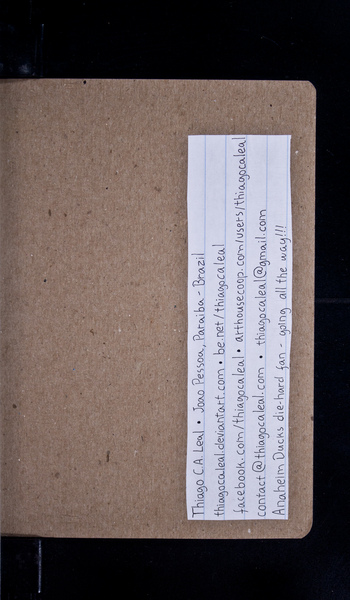 Thiago C.A. Leal • João Pessoa, Paraíba - Brazil
thiagocaleal.deviantart.com • be.net/thiagocaleal
facebook.com/thiagocaleal • arthousecoop.com/users/thiagocaleal
contact@thiagocaleal.com • thiagocaleal@gmail.com
Anaheim Ducks die-hard fan - going all the way!!!